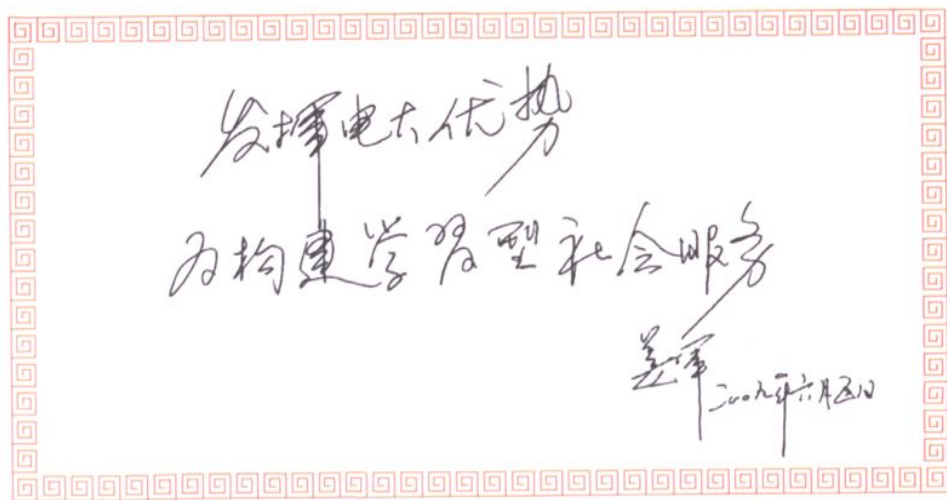 发挥电大优势
为构建学习型社会服务
姜军
二00九年六月五日